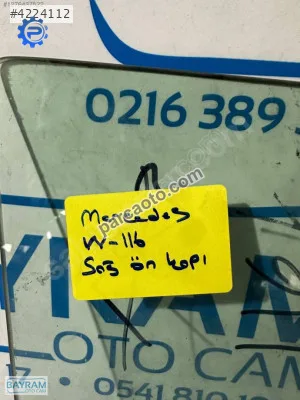 #4224112
0216 389
Mercedes
parcaoto.com
W-116
Sağ ön kapı
OTO CAM
17
0541 810 1
BAYRAM